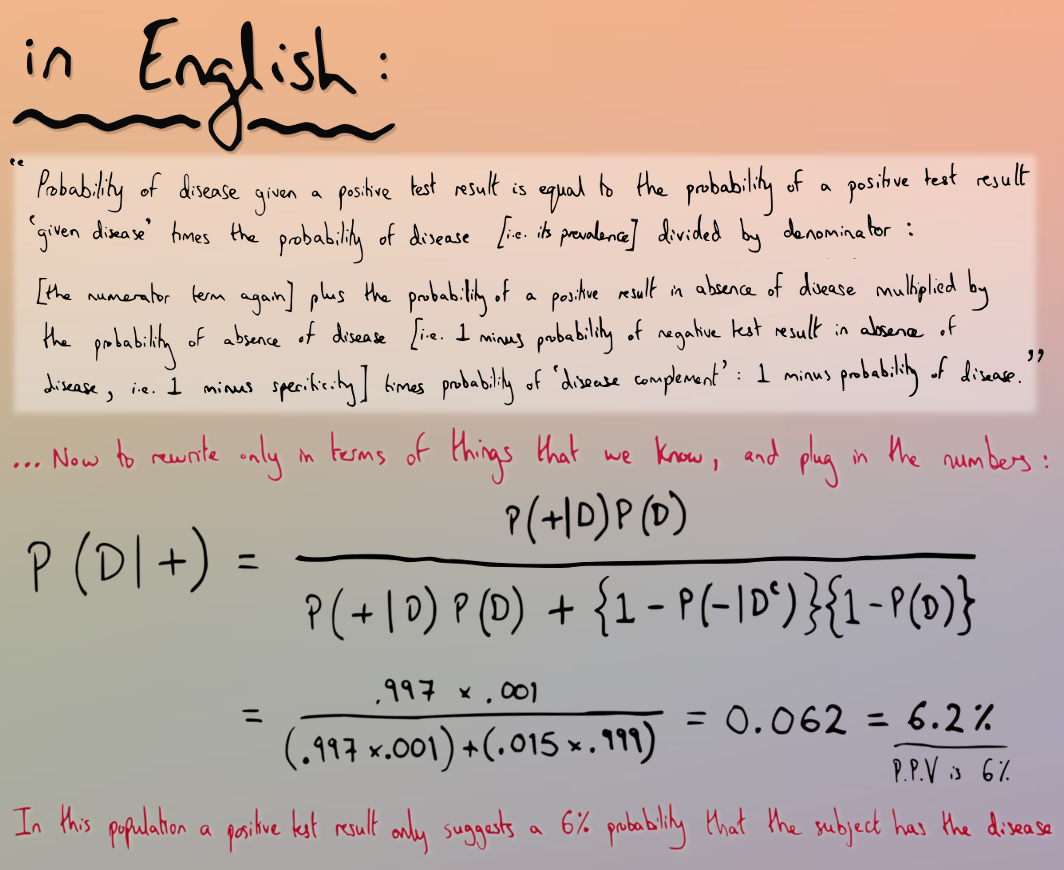 in English:
“Probability of disease given a positive test result is equal to the probability of a positive test result
‘given disease’ times the probability of disease [i.e. its prevalence] divided by denominator:
[the numerator term again] plus the probability of a positive result in absence of disease multiplied by
the probability of absence of disease [i.e. 1 minus probability of negative test result in absence of
disease, i.e. 1 minus specificity] times probability of ‘disease complement’: 1 minus probability of disease.”
... Now to rewrite only in terms of things that we know, and plug in the numbers:
P(+|D)P(D)
P(D|+) =
P(+|D) P(D) + {1 - P(-|Dᶜ)}{1 - P(D)}
.997 × .001
= 
(.997 ×.001)+(.015 ×.999)
= 0.062 = 6.2%
P.P.V is 6%
In this population a positive test result only suggests a 6% probability that the subject has the disease